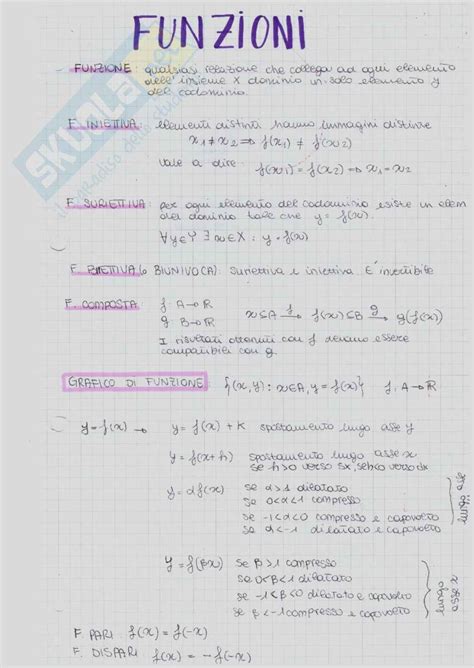 FUNZIONI
FUNZIONE: qualsiasi relazione che collega ad ogni elemento
dell'insieme X dominio un solo elemento y
del codominio.
F. INIETTIVA: elementi distinti hanno immagini distinte
x1 ≠ x2 ⇒ f(x1) ≠ f(x2)
vale a dire: f(x1) = f(x2) ⇒ x1 = x2
F. SURIETTIVA: per ogni elemento del codominio esiste un elem
del dominio tale che y = f(x).
∀y∈Y ∃ x∈X : y = f(x)
F. BIETTIVA (o BIUNIVOCA): suriettiva e iniettiva È invertibile
F. COMPOSTA: f: A→R
g: B→R
x⊆A f→ f(x)⊆B g→ g(f(x))
I risultati ottenuti con f devono essere
compatibili con g.
GRAFICO DI FUNZIONE: {(x,y): x∈A, y=f(x)} f: A→R
y=f(x) → y = f(x) + K spostamento lungo asse y
y = f(x+h) spostamento lungo asse x
se h>0 verso sx, se h<0 verso dx
y = αf(x) se α>1 dilatato
se 0<α<1 compresso
se -1<α<0 compresso e capovolto
se α<-1 dilatato e capovolto
lungo asse y
y = f(βx) se β>1 compresso
se 0<β<1 dilatato
se -1<β<0 dilatato e capovolto
se β<-1 compresso e capovolto
lungo asse x
F. PARI: f(x) = f(-x)
F. DISPARI: f(x) = -f(-x)
SKUOLA.net
il paradiso dello studente